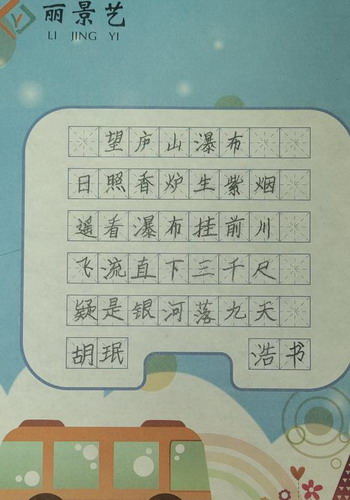 丽景艺
LI JING YI
望庐山瀑布
日照香炉生紫烟
遥看瀑布挂前川
飞流直下三千尺
疑是银河落九天
胡珉 浩书